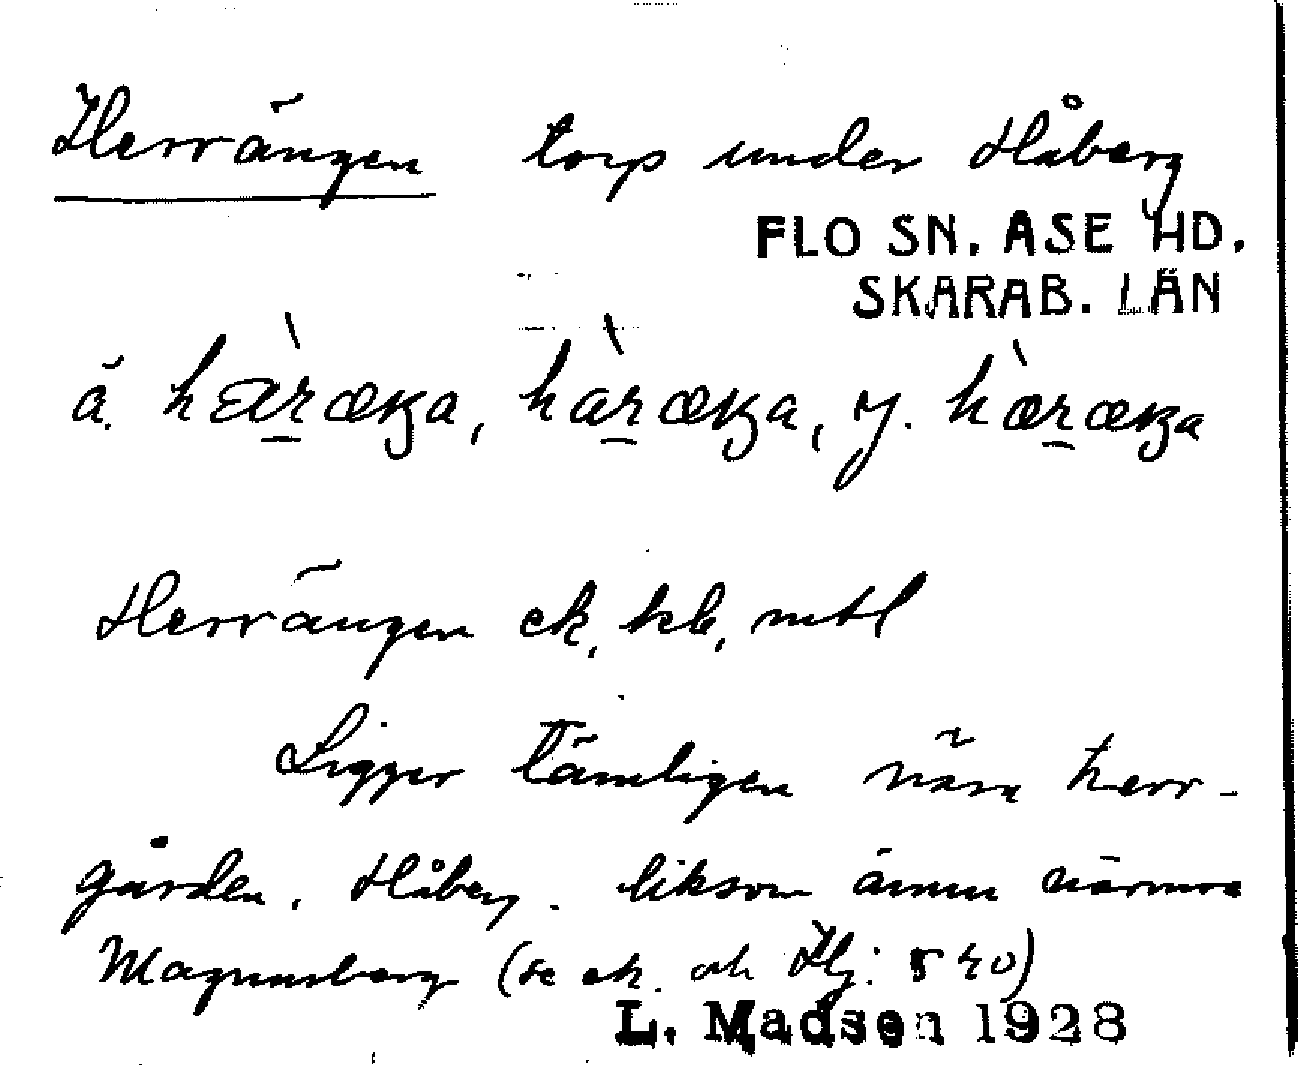 Herrängen torp under Håberg
FLO SN. ASE HD.
SKARAB. LÄN
å hæ̀ræŋa, hàræŋa, y. hæ̀ræŋa
Herrängen ek, kb, mtl
Ligger tämligen nära herr-
gården, Håberg. liksom ännu närmre
Magnusberg (se ek. och Hj: 540)
L. Madsen 1928